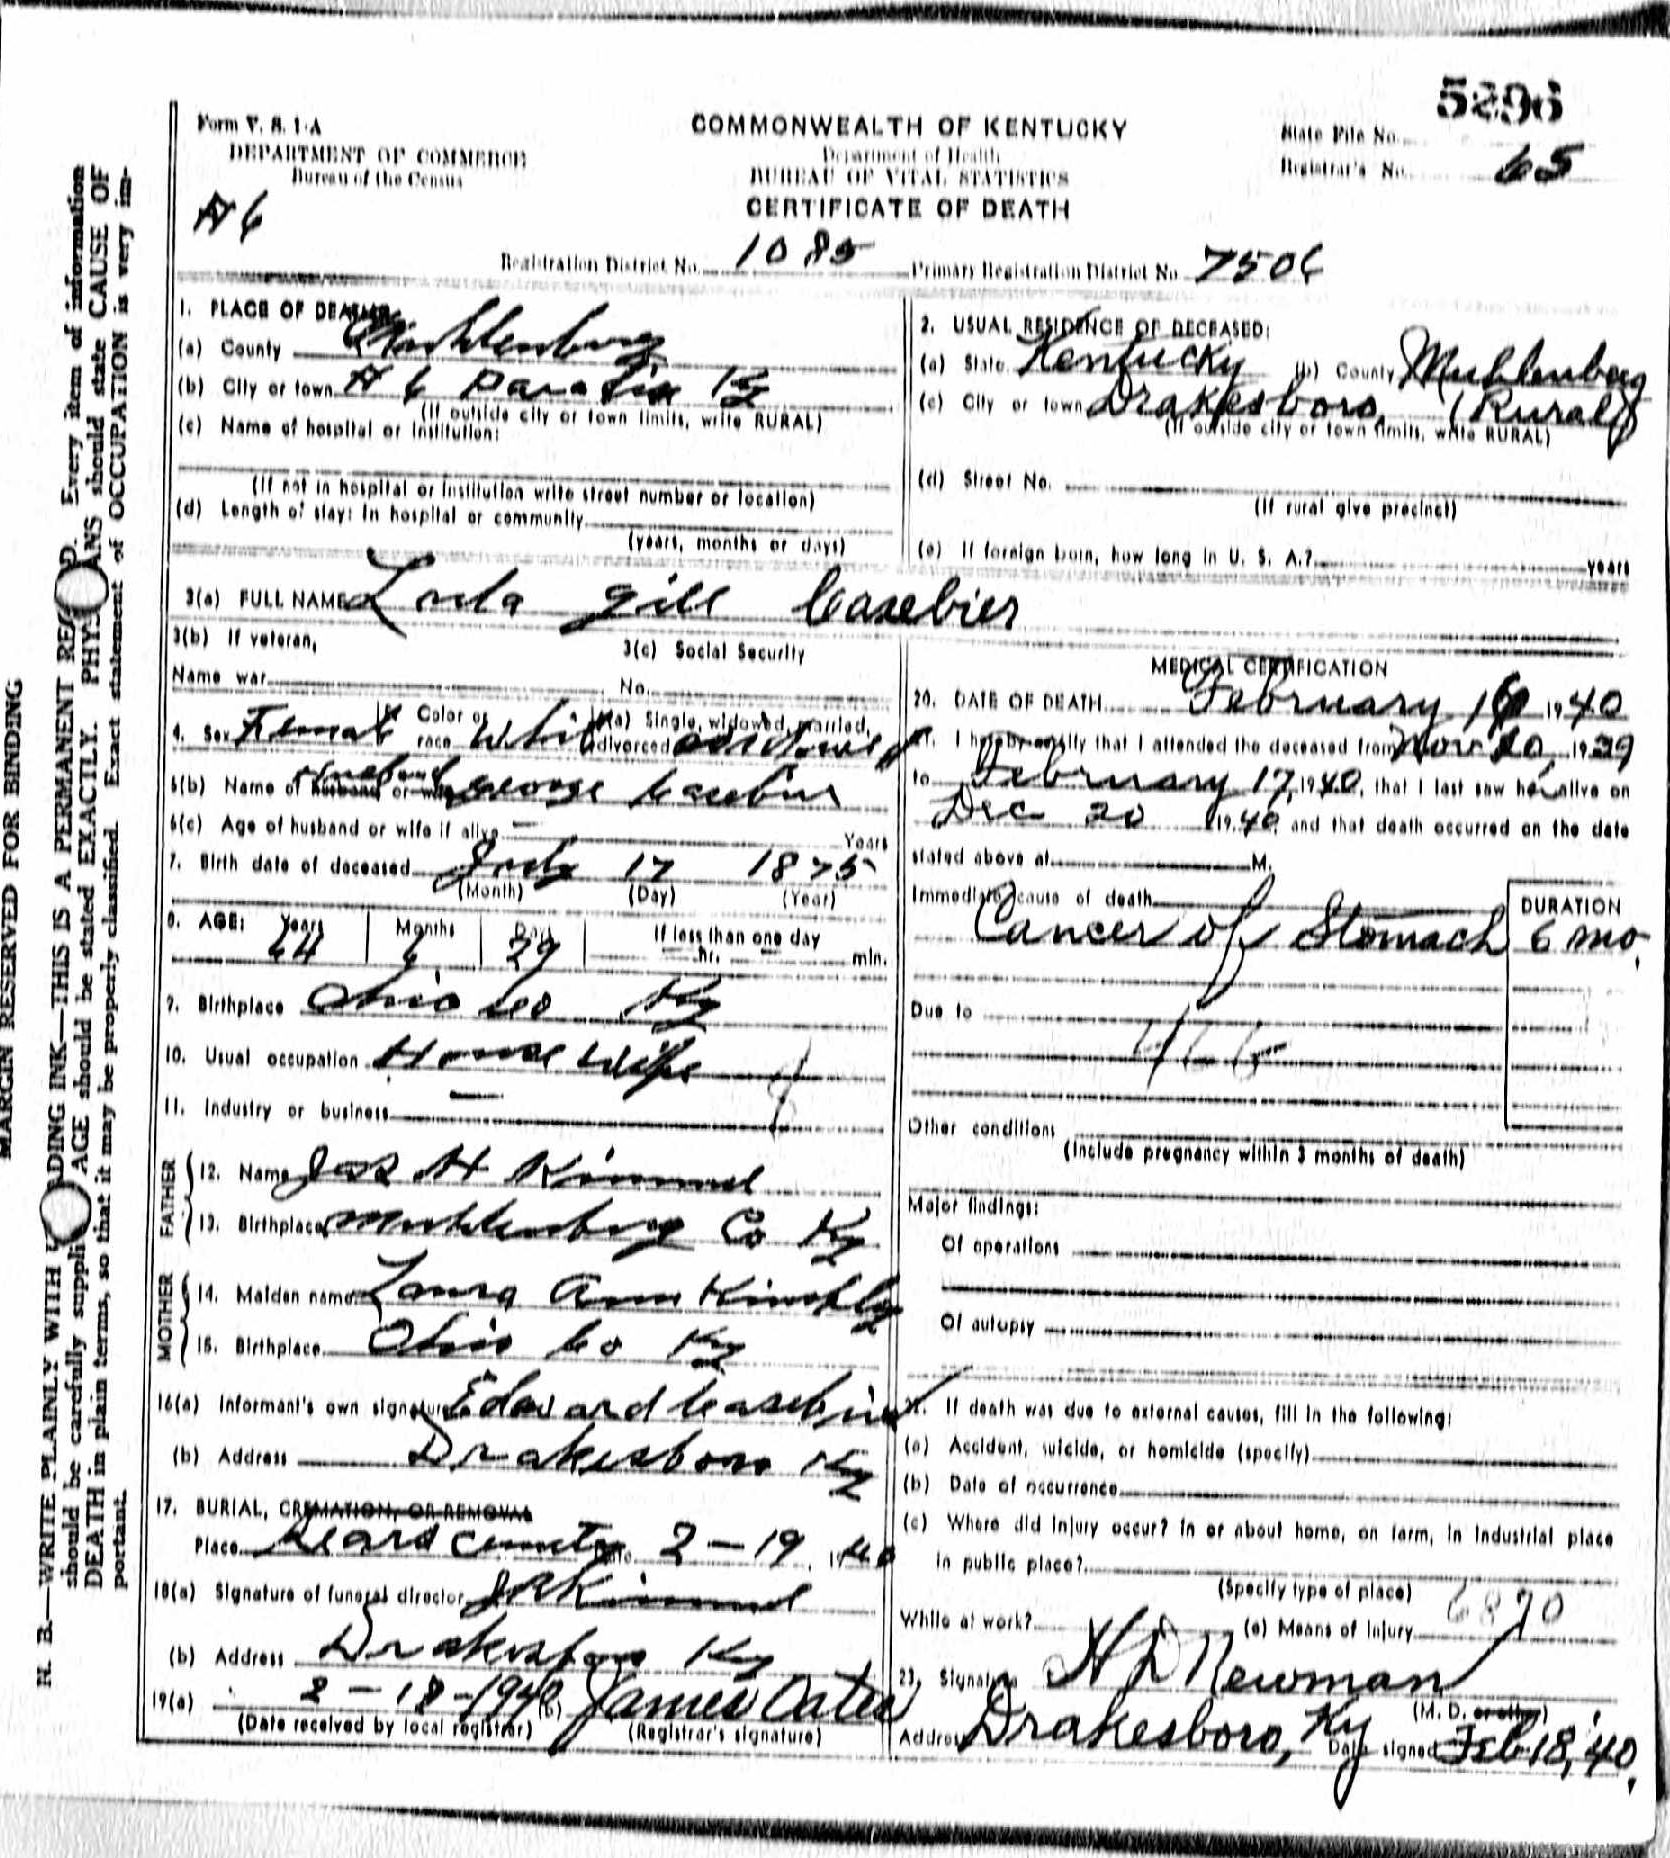 5296
Form V. S. 1-A
COMMONWEALTH OF KENTUCKY
State File No.
DEPARTMENT OF COMMERCE
Department of Health
Registrar's No. 65
Bureau of the Census
BUREAU OF VITAL STATISTICS
CERTIFICATE OF DEATH
Registration District No. 1085 Primary Registration District No. 7506
1. PLACE OF DEATH:
(a) County Muhlenberg
(b) City or town
(If outside city or town limits, write RURAL)
(c) Name of hospital or institution:
(If not in hospital or institution write street number or location)
(d) Length of stay: In hospital or community
(years, months or days)
2. USUAL RESIDENCE OF DECEASED:
(a) State Kentucky (b) County Muhlenberg
(c) City or town Drakesboro, (Rural)
(If outside city or town limits, write RURAL)
(d) Street No.
(If rural give precinct)
(e) If foreign born, how long in U. S. A.? years
3(a) FULL NAME Lula Gill Casebier
3(b) If veteran,
3(c) Social Security
Name war No.
4. Sex Female Color or race White (a) Single, widowed, married, divorced
6(b) Name of husband or wife George Casebier
6(c) Age of husband or wife if alive Years
7. Birth date of deceased July 17 1875
(Month) (Day) (Year)
8. AGE: Years Months Days If less than one day
64 6 29 hr. min.
9. Birthplace Ohio Co Ky
10. Usual occupation House Wife
11. Industry or business
FATHER
12. Name H Kimmel
13. Birthplace Muhlenberg Co Ky
MOTHER
14. Maiden name Laura Ann
15. Birthplace Ohio Co Ky
16(a) Informant's own signature Edward Casebier
(b) Address Drakesboro Ky
17. BURIAL, CREMATION, OR REMOVAL
Place Date 2-19, 1940
18(a) Signature of funeral director Kimmel
(b) Address Drakesboro Ky
19(a) 2-18-1940 (b) James Oates
(Date received by local registrar) (Registrar's signature)
MEDICAL CERTIFICATION
20. DATE OF DEATH February 1940
21. I hereby certify that I attended the deceased from Nov 20, 1939
to February 17, 1940, that I last saw her alive on
Dec 20 1940 and that death occurred on the date
stated above at M.
Immediate cause of death
DURATION
Cancer of Stomach 6 mo.
Due to
Other conditions
(Include pregnancy within 3 months of death)
Major findings:
Of operations
Of autopsy
22. If death was due to external causes, fill in the following:
(a) Accident, suicide, or homicide (specify)
(b) Date of occurrence
(c) Where did injury occur? In or about home, on farm, in industrial place
in public place?
(Specify type of place)
While at work? (e) Means of Injury
23. Signature H D Newman
(M. D. or other)
Address Drakesboro, Ky Date signed Feb 18, '40.
MARGIN RESERVED FOR BINDING
N. B.—WRITE PLAINLY WITH ADING INK—THIS IS A PERMANENT RE D. Every item of information
should be carefully suppli AGE should be stated EXACTLY. PHYS ANS should state CAUSE OF
DEATH in plain terms, so that it may be properly classified. Exact statement of OCCUPATION is very im-
portant.